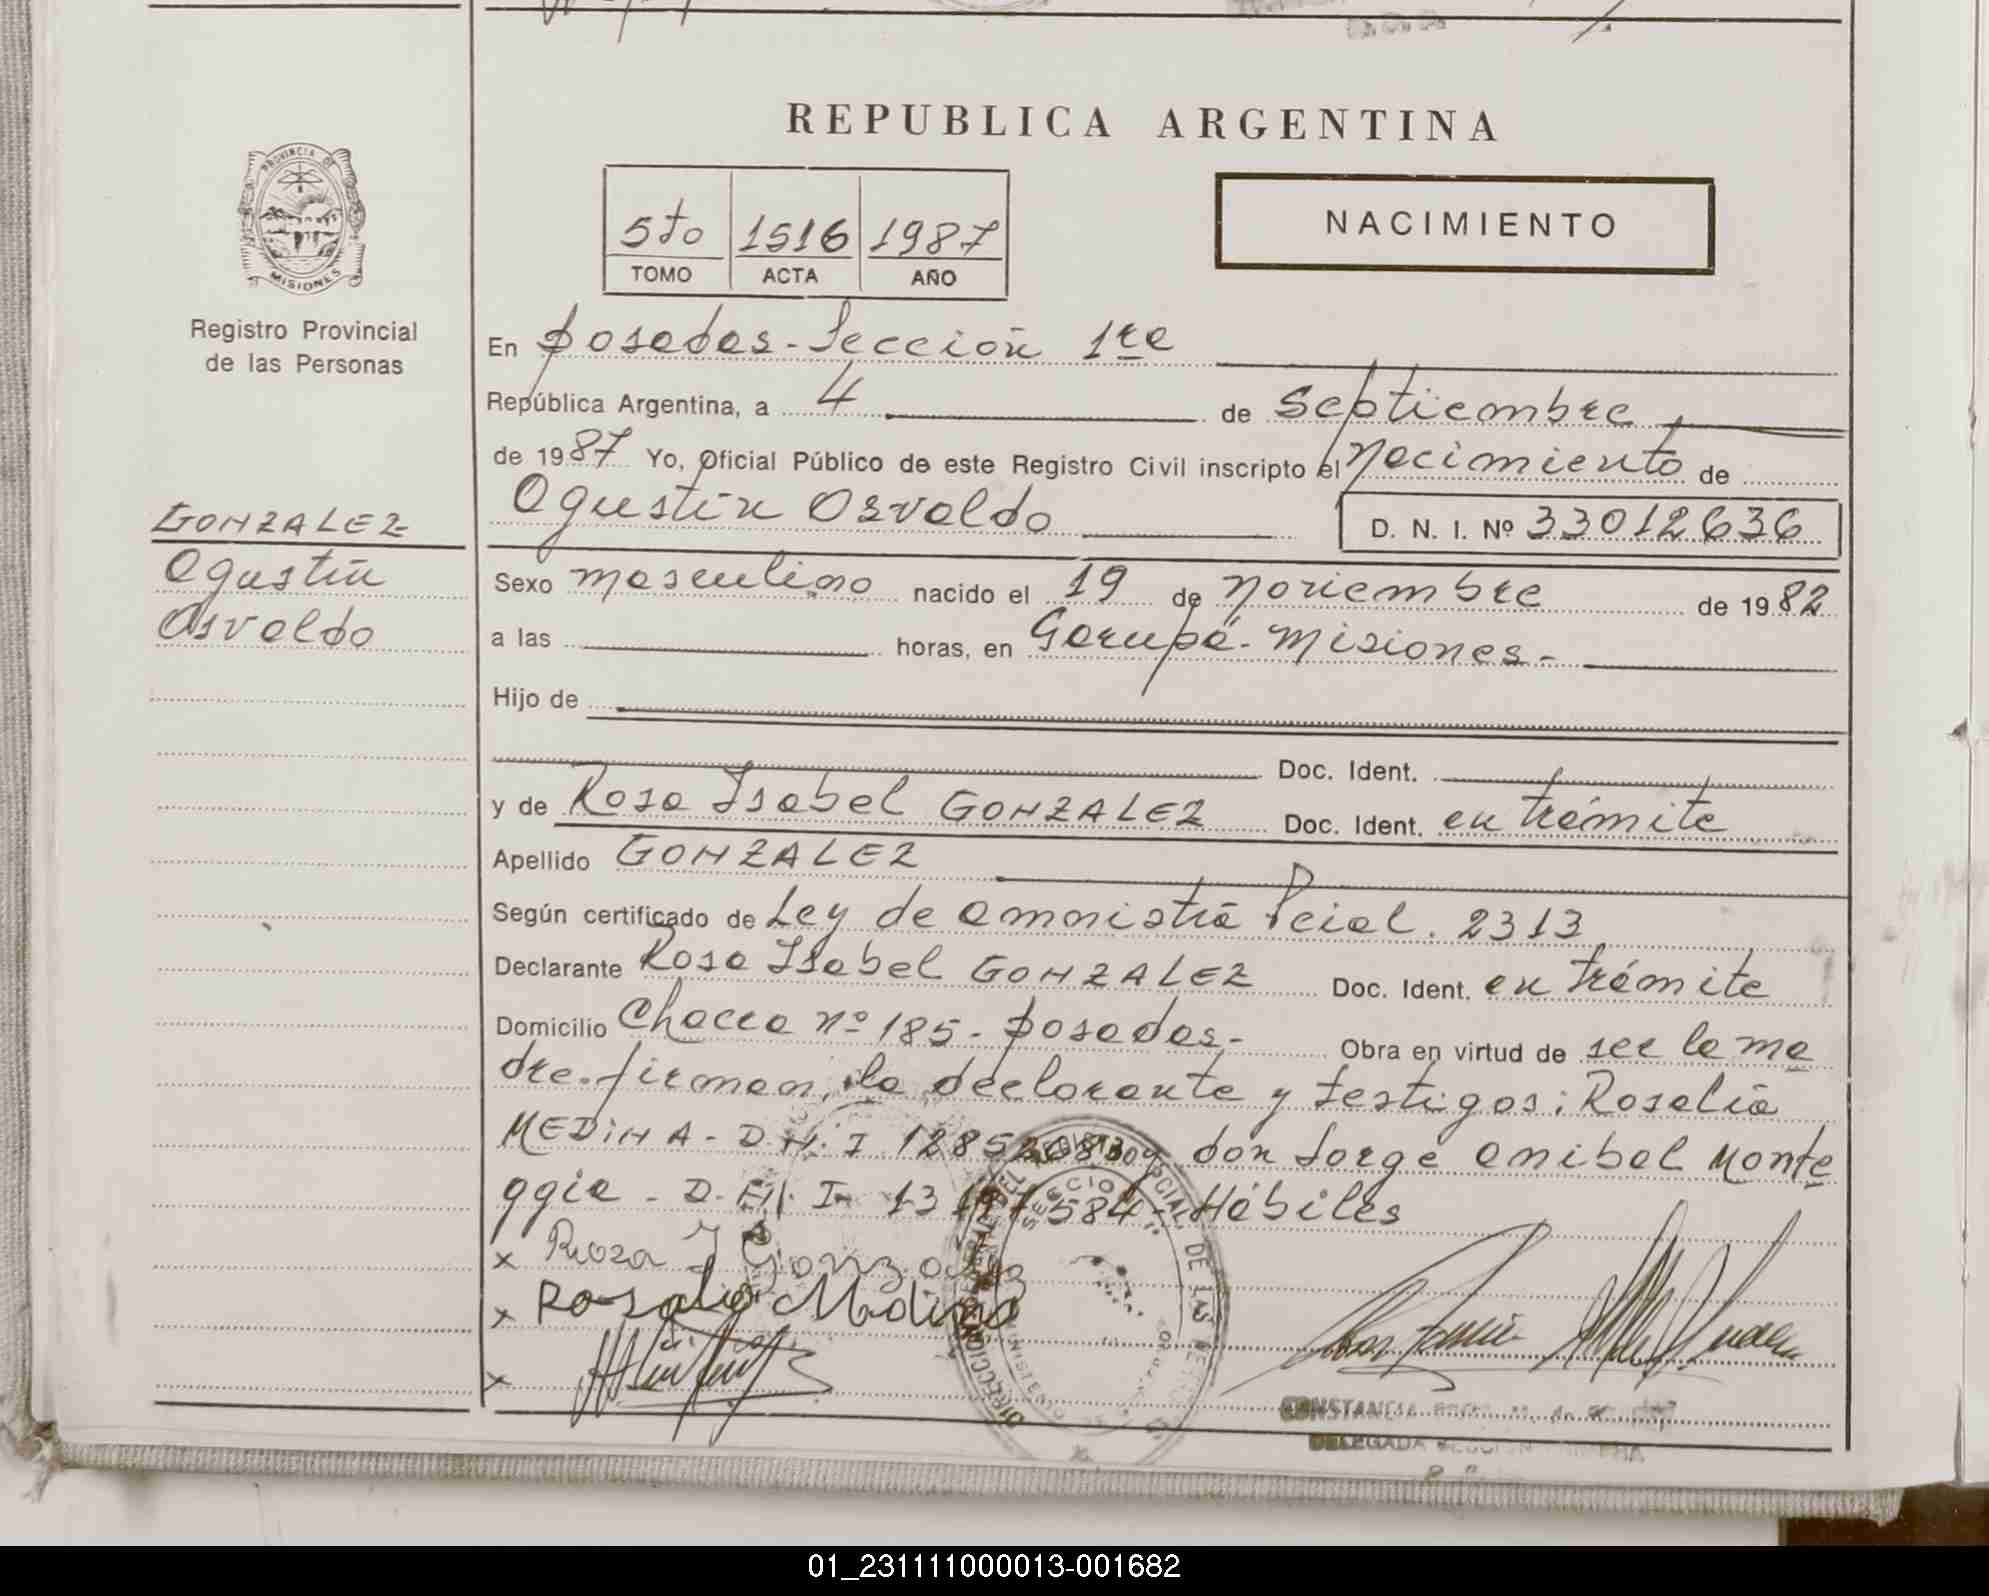 REPUBLICA ARGENTINA
PROVINCIA DE
MISIONES
Registro Provincial
de las Personas
5to 1516 1987
TOMO ACTA AÑO
NACIMIENTO
En Posadas - Sección 1ra
República Argentina, a 4 de septiembre
de 1987 Yo, Oficial Público de este Registro Civil inscripto el nacimiento de
Agustín Osvaldo D. N. I. Nº 33012636
GONZALEZ
Agustín
Osvaldo
Sexo masculino nacido el 19 de noviembre de 1982
a las horas, en Garupá - Misiones -
Hijo de
Doc. Ident.
y de Rosa Isabel GONZALEZ Doc. Ident. en trámite
Apellido GONZALEZ
Según certificado de Ley de amnistía Pcial. 2313
Declarante Rosa Isabel GONZALEZ Doc. Ident. en trámite
Domicilio Chacra nº 185 - Posadas - Obra en virtud de ser la ma
dre. firman, la declarante y testigos: Rosalía
MEDINA - D.N.I don Jorge Anibal Monte
ggia - D.N.I - Hábiles
x Roza I Gonzalez
x Rosalia Medina
x
DELEGADA
01_231111000013-001682